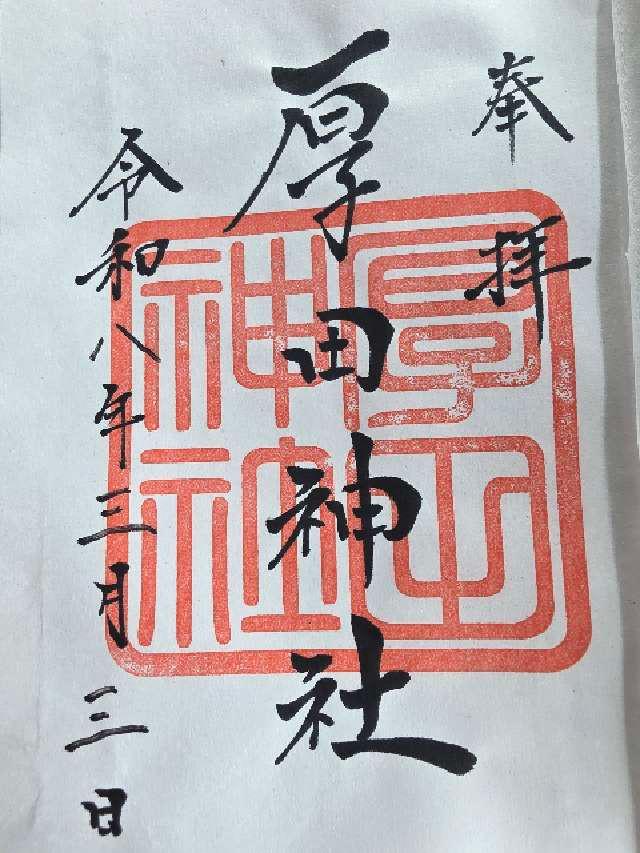 奉拝
厚田神社
令和八年三月三日
厚田神社